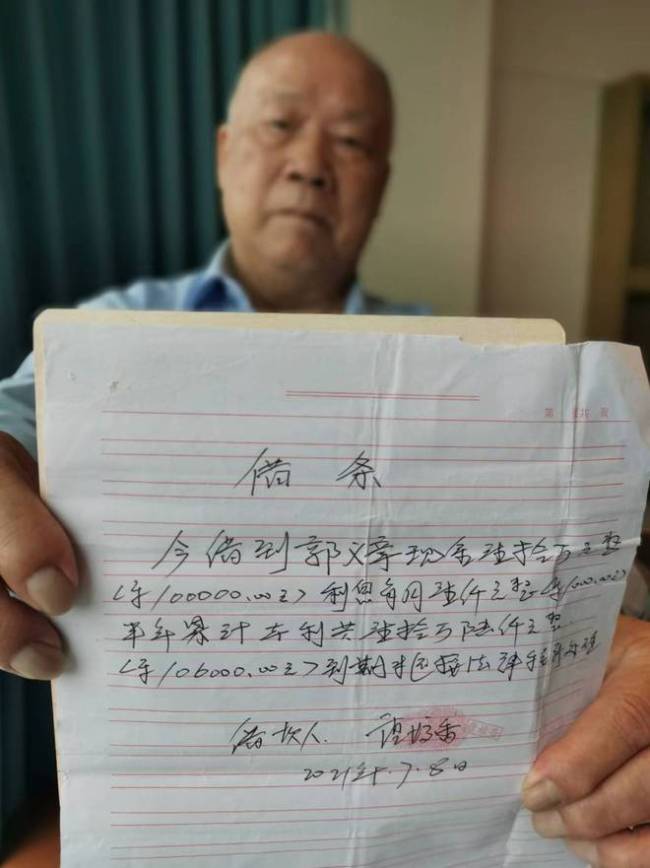 第 页 共 页
借 条
今借到郭义幸现金壹拾万元整
(¥100000.00元)利息每月壹仟元整(¥1000.00元)
半年累计本利共壹拾万陆仟元整
(¥106000.00元)到期
借款人
2021年.7.8日